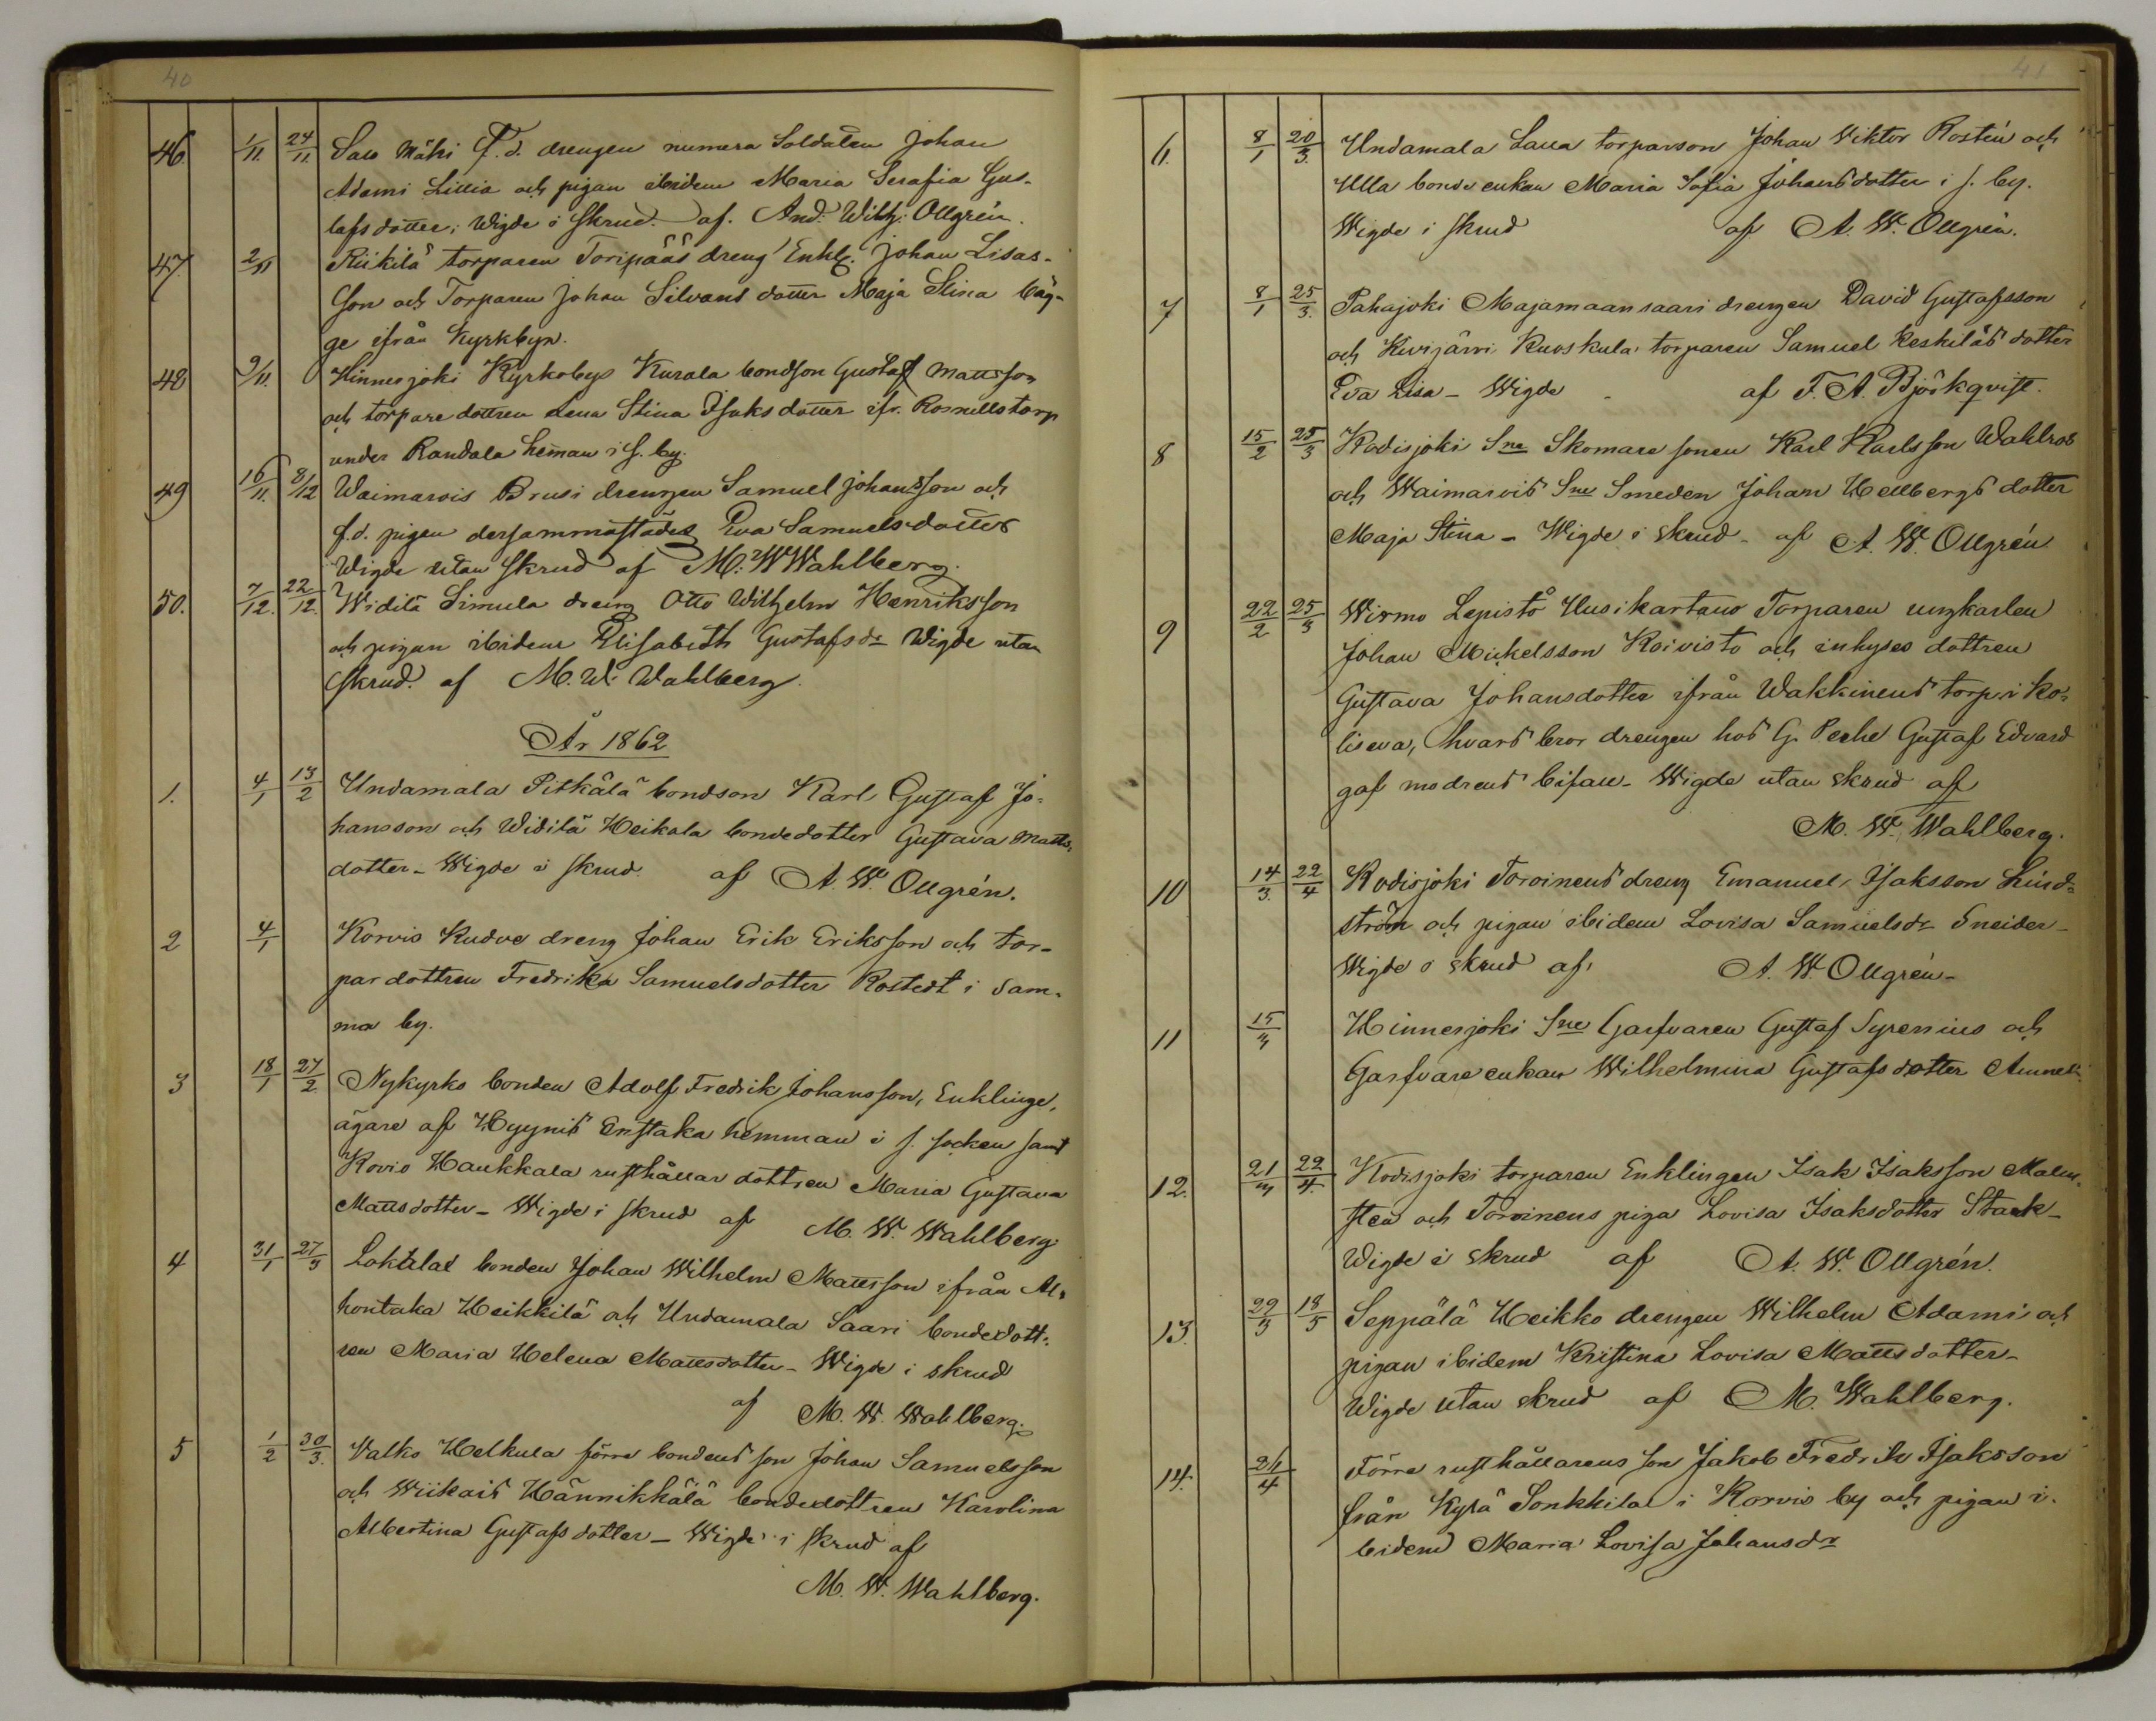 40
46. 1/11. 24/11. Salo Mäki F. d. drengen numera Soldaten Johan
Adami Lillia och pigan ibidem Maria Serafia Gus-
tafsdotter; Wigde i skrud. af. And. Wilh: Ollgrén.
47 2/11 Riikilä torparen Toripääs dreng Enkl. Johan Lisas-
son och Torparen Johan Silvans dotter Maja Stina båg-
ge ifrån Kyrkbyn.
48 9/11. Hinnerjoki Kyrkobys Kurala bondson Gustaf Mattsson
och torpare dottren Lena Stina Isaksdotter ifr. Rosnells torp
under Randala heman i s. by.
49 16/11. 8/12 Waimarois Brusi drengen Samuel Johansson och
f.d. pigan dersammastädes Eva Samuelsdotter
Wigde utan skrud af M. W Wahlberg.
50. 7/12. 22/12. Widilä Simula dreng Otto Wilhelm Henriksson
och pigan ibidem Elisabeth Gustafsdr Wigde utan
skrud. af M. W. Wahlberg.
År 1862
1. 4/1 13/2 Undamala Pitkälä bondson Karl Gustaf Jo-
hansson och Widilä Heikola bondedotter Gustava Matts-
dotter - Wigde i skrud. af A. W. Ollgrén.
2 4/1 Korvis Kudve dreng Johan Erik Eriksson och tor-
pardottren Fredrika Samuelsdotter Rostedt i sam-
ma by.
3 18/1 27/2. Nykyrko bonden Adolf Fredrik Johansson, Enklinge,
ägare af Hyynis Enstaka hemman i s. socken samt
Kovio Haukkala rusthållar dottren Maria Gustava
Mattsdotter - Wigde i skrud af M. W. Wahlberg
4 31/1 27/3 Loktalax bonden Johan Wilhelm Mattsson ifrån Al-
hontaka Heikkilä och Undamala Saari bondedott-
ren Maria Helena Mattsdotter - Wigde i skrud
af M. W. Wahlberg.
5 1/2 30/3. Valko Helkula förra bondens son Johan Samuelsson
och Wiikais Hännikkälä bondedottren Karolina
Albertina Gustafsdotter - Wigde i skrud af
M. W. Wahlberg.
41
6. 8/1 20/3. Undamala Laua torparson Johan Viktor Rostén och
Ulla bonde enkan Maria Sofia Johansdotter i s. by.
Wigde i skrud af A. W. Ollgrén.
7 8/1 25/3. Pahajoki Majamaansaari drengen David Gustafsson
och Kivijärvi Kuoskula torparen Samuel Keskiläs dotter
Eva Lisa - Wigde af F. A. Björkqvist.
8 15/2 25/3 Kodisjoki Sne Skomare sonen Karl Karlsson Wahlros
och Waimarois Sne Smeden Johan Hellbergs dotter
Maja Stina - Wigde i skrud - af A. W. Ollgrén
9 22/2 25/3 Wirmo Lepistö Uusikartano Torparen ungkarlen
Johan Mickelsson Koivisto och inhyses dottren
Gustava Johansdotter ifrån Wakkinens torp i Ko-
liseva, hvars bror drengen hos G. Peehe Gustaf Edvard
gaf modrens bifau - Wigde utan skrud af
M. W. Wahlberg.
10 14/3. 22/4 Kodisjoki Toroinens dreng Emanuel Isaksson Lind-
ström och pigan ibidem Lovisa Samuelsdr Sneider -
Wigde i skrud af. A. W. Ollgrén -
11 15/3 Hinnerjoki Sne Garfvaren Gustaf Syrenius och
Garfvare enkan Wilhelmina Gustafsdotter
12. 21/3 22/4. Kodisjoki torparen Enklingen Isak Isaksson Malm-
sten och Toroinens piga Lovisa Isaksdotter Stark -
Wigde i skrud af A. W. Ollgrén.
13. 29/3 18/5 Seppälä Heikko drengen Wilhelm Adami och
pigan ibidem Kristina Lovisa Mattsdotter -
Wigde utan skrud af M. Wahlberg.
14. 21/4 Förre rusthållarens son Jakob Fredrik Isaksson
från Kylä Sonkkila i Korvis by och pigan i-
bidem Maria Lovisa Johansdr